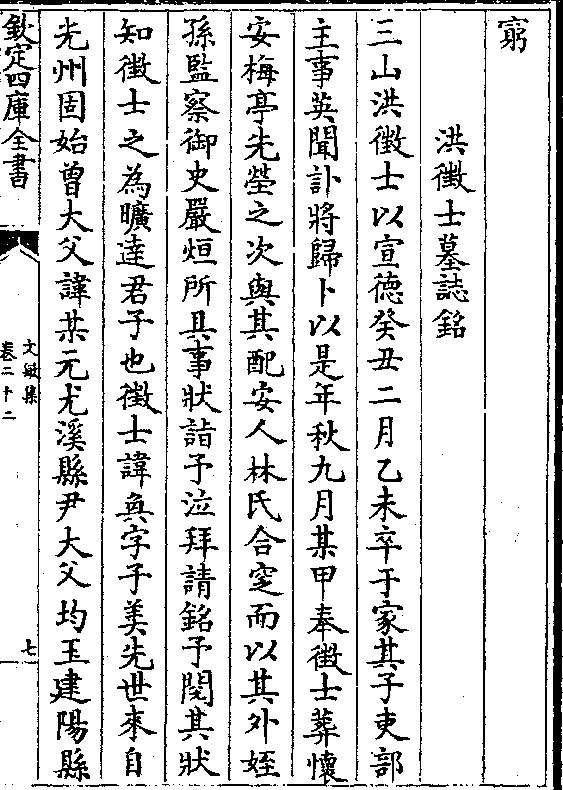 窮
洪徵士墓誌銘
三山洪徵士以宣德癸丑二月乙未卒于家其子吏部
主事英聞訃將歸卜以是年秋九月某甲奉徵士葬懷
安梅亭先塋之次與其配安人林氏合窆而以其外姪
孫監察御史嚴烜所具事狀詣予泣拜請銘予閱其狀
知徵士之為曠達君子也徵士諱奐字子美先世來自
光州固始曽大父諱某元尤溪縣尹大父均玉建陽縣
欽定四庫全書
文敏集
卷二十二
七